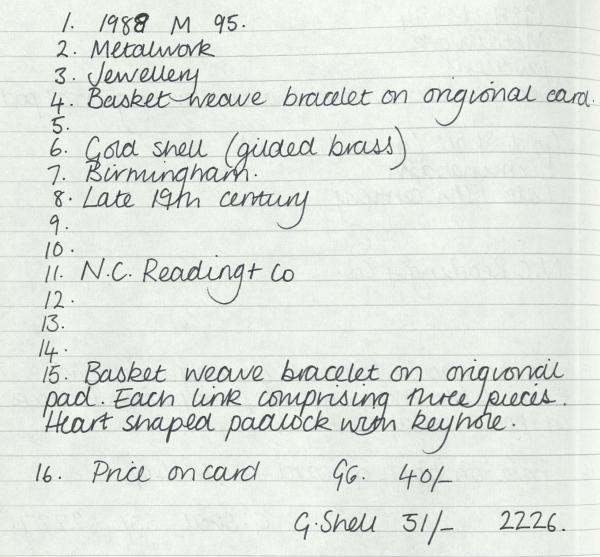 1. 1988 M 95.
2. Metalwork
3. Jewellery
4. Basket weave bracelet on origional card.
5.
6. Gold shell (gilded brass)
7. Birmingham.
8. Late 19th century
9.
10.
11. N.C. Reading + Co
12.
13.
14.
15. Basket weave bracelet on origional
pad. Each link comprising three pieces.
Heart shaped padlock with keyhole.
16. Price on card GG. 40/-
G. Shell 51/- 2226.